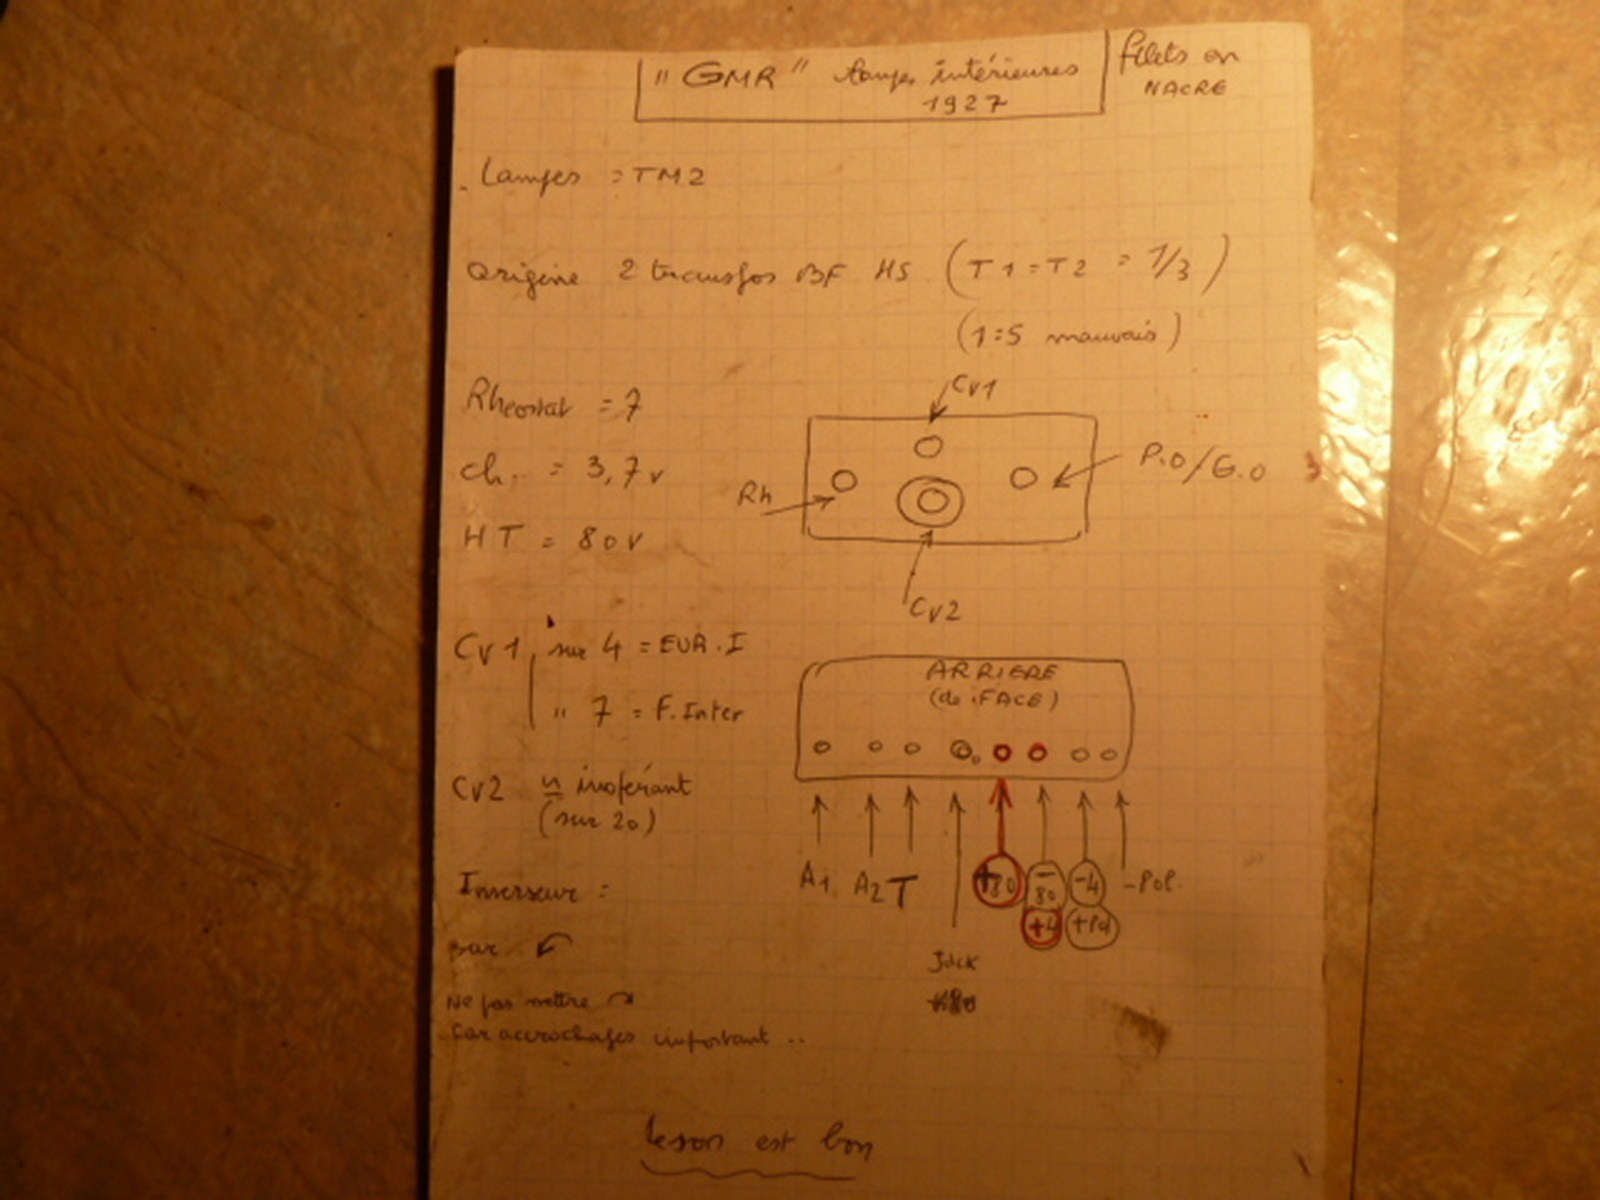 "GMR" lampes intérieures
1927
filets en
NACRE
- Lampes = TM2
origine 2 transfos BF HS (T1 = T2 = 1/3)
(1=5 mauvais)
Rheostat = 7
ch. = 3,7v
HT = 80v
CV1
Rh
P.O/G.O
CV2
CV1 sur 4 = EUR.I
" 7 = F.Inter
CV2
(sur 20)
Inverseur :
sur
Ne pas mettre
car accrochages important ..
ARRIERE
(de FACE)
A1 A2 T +80 -80 -4 -Pol.
+4 +Pol
Jack
le son est bon